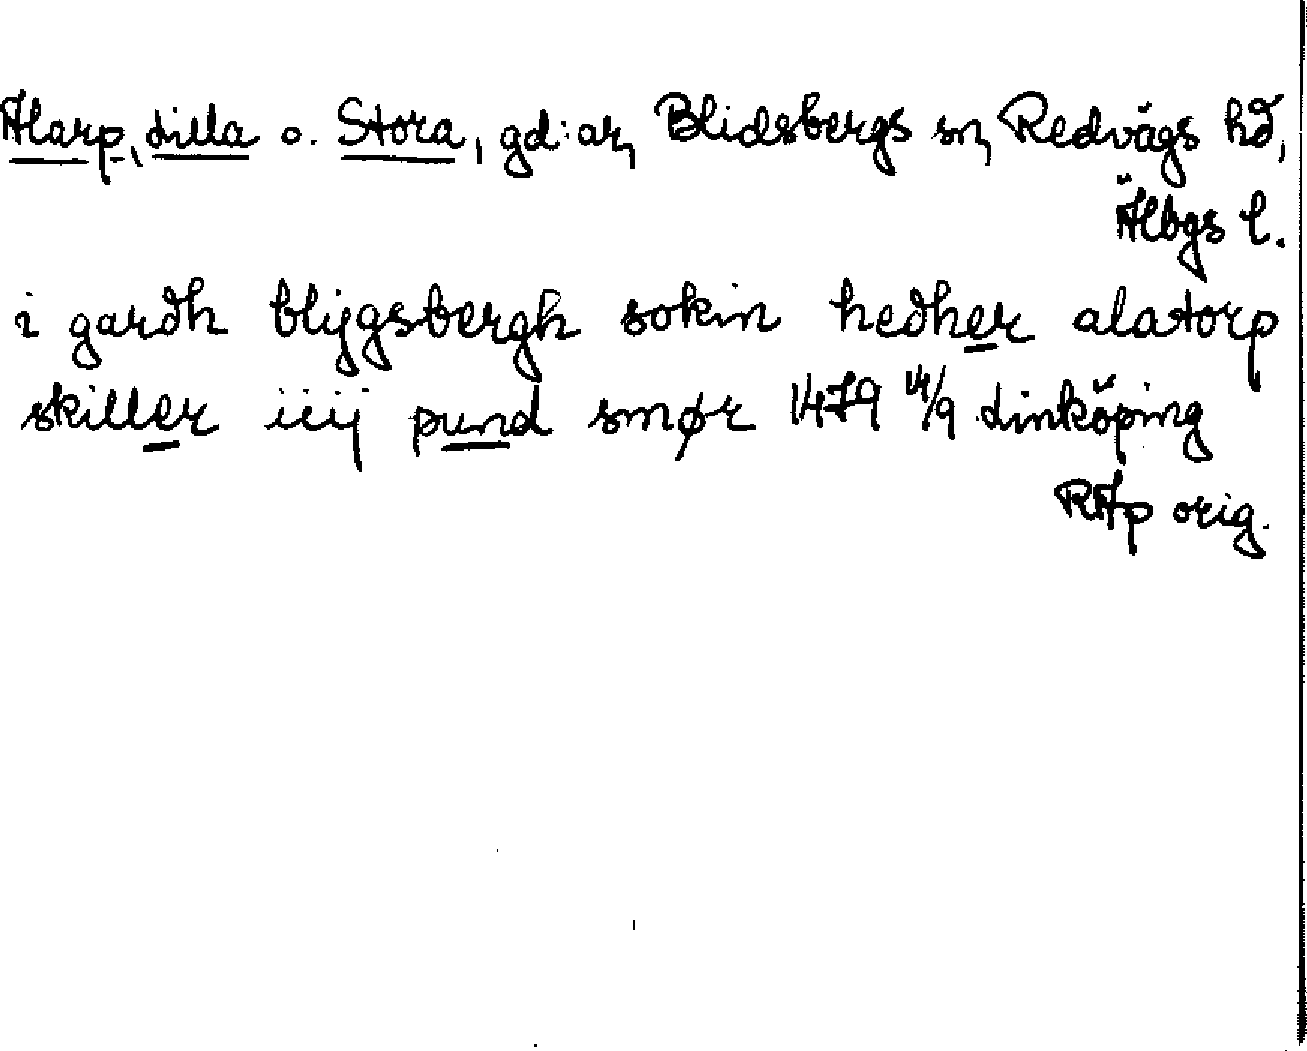 Alarp, Lilla o. Stora, gd:ar, Blidsbergs sn, Redvägs hd,
Älvbgs l.
i gardh blijgsbergh sokin hedher alatorp
skiller iiij pund smør 1479 14/9 Linköping
RAp orig.